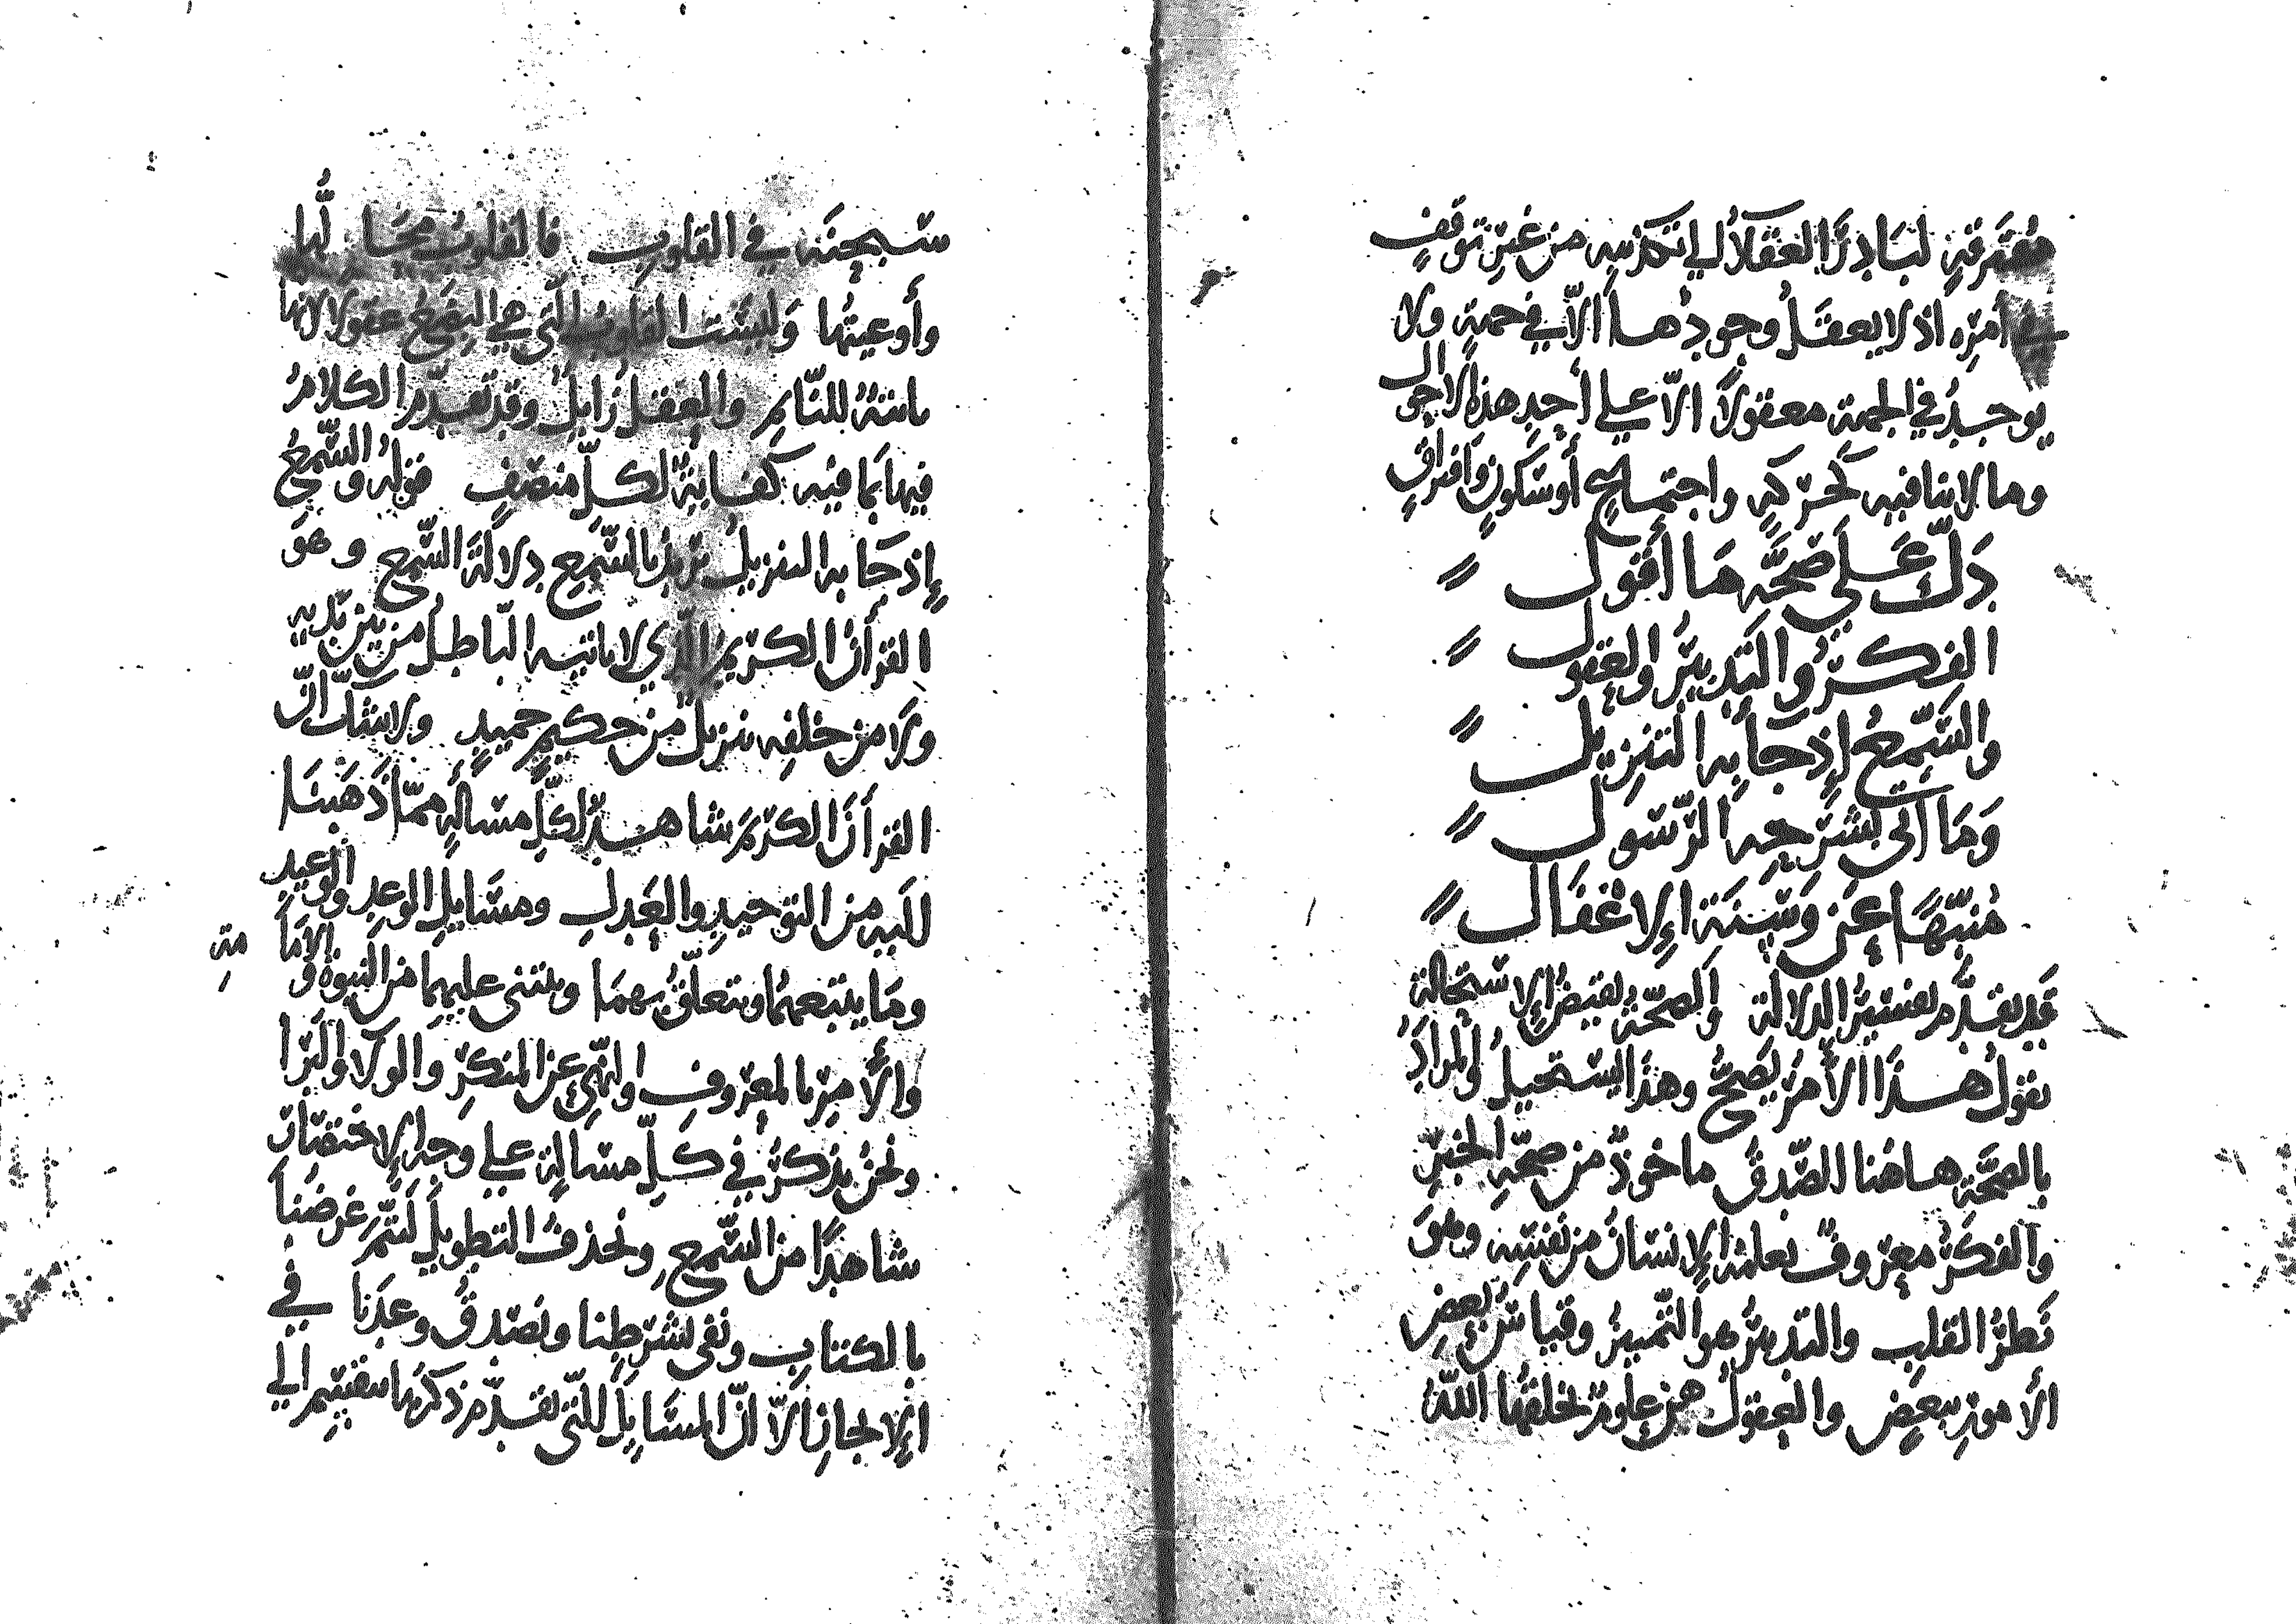 مفترقة لبادر العقلا الى تكذيبه من غير توقف
في امره اذ لا يعقل وجودها الا في جهة ولا
يوجد في الجهة معقولا الا على أحد هذه الاحوال
وما لا ينافيه كحركة واجتماع أو سكون وافتراق
دل على صحة ما أقول
الفكر والتدبير والعقول
والسمع إذ جا به التنزيل
وما اتى بشرحه الرسول
منبها عن وسنة الإغفال
قد تقدم تفسير الدلالة والصحة نقيض الإستحالة
تقول هذا الأمر يصح وهذا يستحيل والمراد
بالصحة هاهنا الصدق ماخوذ من صحة الخبر
والفكر معروف يعلمه الإنسان من نفسه وهو
نظر القلب والتدبير هو التمييز وقياس بعض
الأمور ببعض والعقول هي علوم يخلقها الله
سبحنه في القلوب فالقلوب محا لها
وأوعيتها وليست القلوب التي هي البضع عقولا لانها
ثابتة للنائم والعقل زايل وقد تقدم الكلام
فيها بما فيه كفاية لكل منصف قوله والسمع
إذ جا به التنزيل نريد بالسمع دلالة السمع وهو
القرأن الكريم الذي لا ياتيه الباطل من بين يديه
ولا من خلفه تنزيل من حكيم حميد ولا شك ان
القرأن الكريم شاهد لكل مسألة مما ذهبنا
اليه من التوحيد والعدل ومسايل الوعد والوعيد
وما يتبعهما ويتعلق بهما وينبني عليهما من النبوة والاما مة
والأمر بالمعروف والنهي عن المنكر والولا والبرا
ونحن نذكر في كل مسالة على وجه الإختصار
شاهدا من السمع ونحذف التطويل ليتم غرضنا
بالكتاب ونفي بشرطنا ونصدق وعدنا في
الإيجاز الا ان المسايل التي تقدم ذكرها تنقسم الى